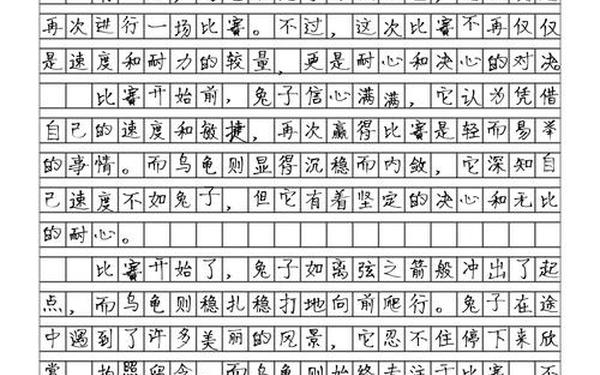 再次进行一场比赛。不过，这次比赛不再仅仅
是速度和耐力的较量，更是耐心和决心的对决
比赛开始前，兔子信心满满，它认为凭借
自己的速度和敏捷，再次赢得比赛是轻而易举
的事情。而乌龟则显得沉稳而内敛，它深知自
己速度不如兔子，但它有着坚定的决心和无比
的耐心。
比赛开始了，兔子如离弦之箭般冲出了起
点，而乌龟则稳扎稳打地向前爬行。兔子在途
中遇到了许多美丽的风景，它忍不住停下来欣
赏、拍照留念，而乌龟则始终专注于比赛，不